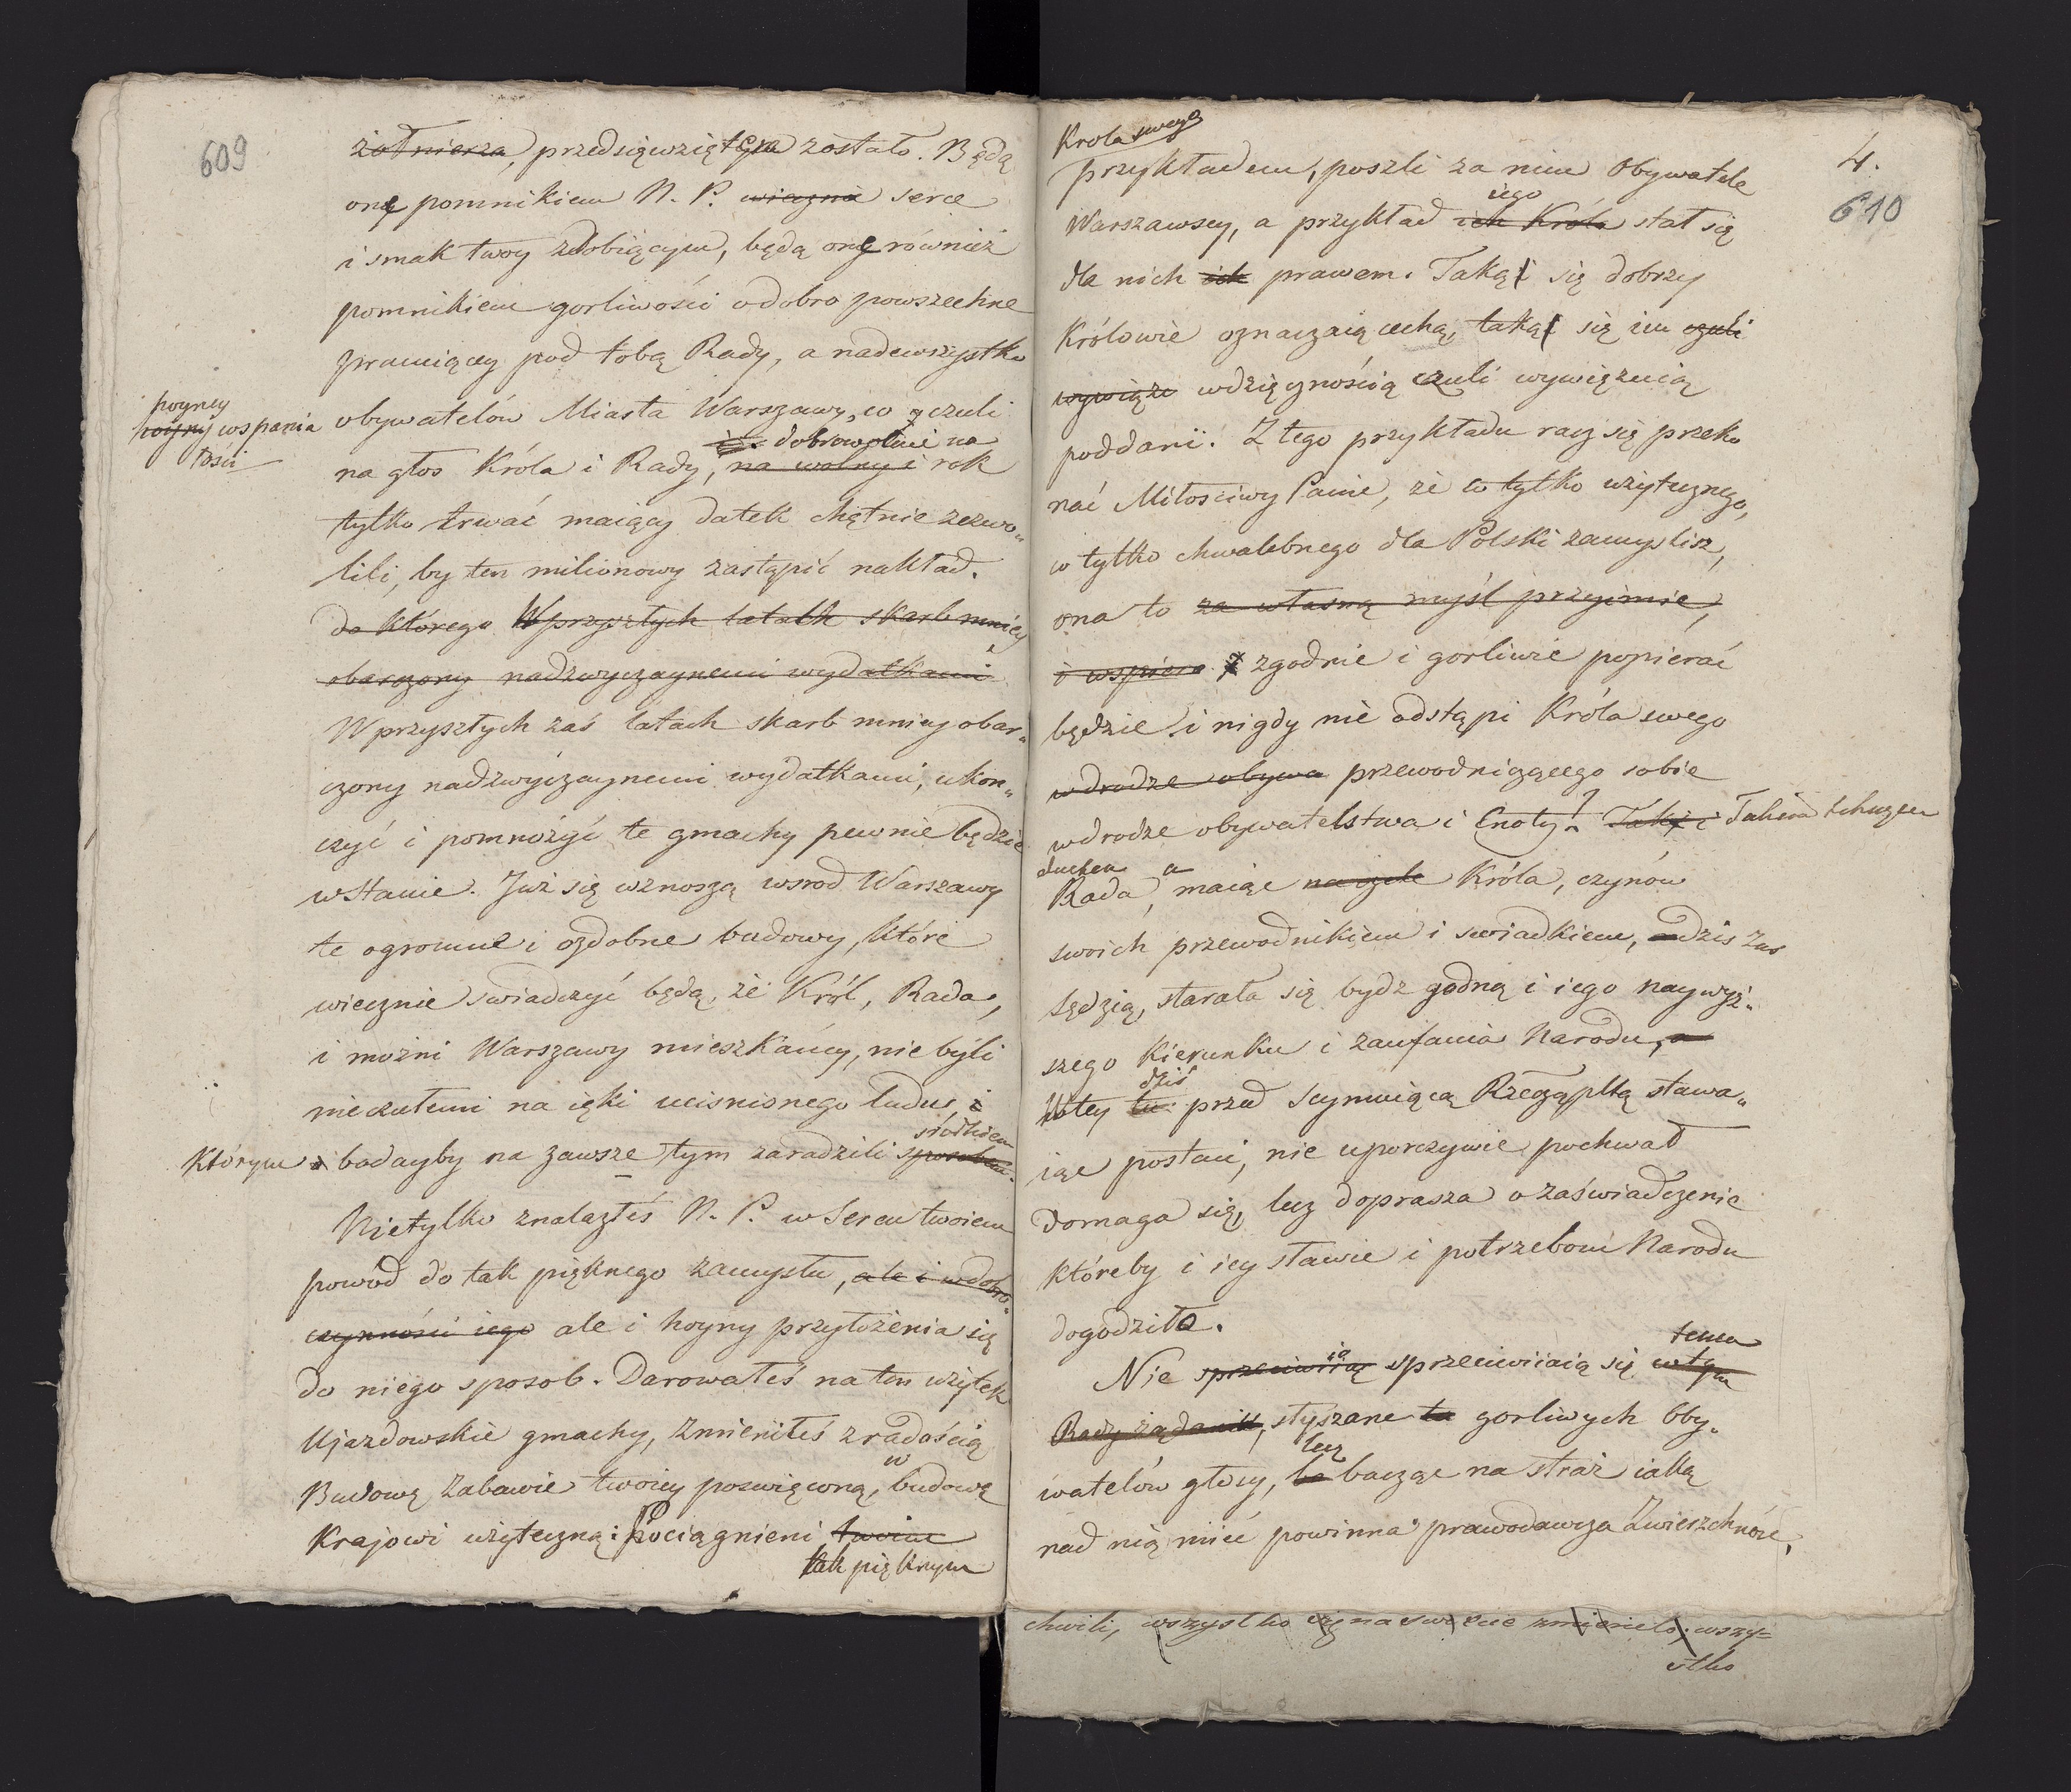 609
żołnierza, przedsięwziętem zostało. Będą
one pomnikiem N. P. wieczna serce
i smak twoy zdobiącym, będą one również
pomnikiem gorliwości o dobro powszechne
pracuiącey pod tobą Rady, a nadewszystko
obywatelów Miasta Warszawy, co czuli
wspania
łości
dobrowolnie na
na głos Króla i Rady, na wolny i rok
tylko trwać maiący datek chętnie zezwo„
lili, by ten milionowy zastąpić nakład.
do którego W przyszłych latach skarb mniey
obarczony nadzwyczaynemi wydatkami
W przyszłych zaś latach skarb mniey obar„
czony nadzwyczaynemi wydatkami, ukon„
czyć i pomnożyć te gmachy pewnie będzie
w stanie. Już się wznoszą wsrod Warszawy
te ogromne i ozdobne budowy, które
wiecznie swiadczyć będą, że Król, Rada,
i możni Warszawy mieszkańcy, nie byli
nieczułemi na ięki ucisnionego ludu, i
środkiem
którym badayby na zawsze tym zaradzili sposobem.
Nietylko znalazłeś N. P. w Sercu twoiem
powod do tak pięknego zamysłu, ale i w dobro„
czynności iego ale i hoyny przyłożenia się
do niego sposob. Darowałeś na ten użytek
Ujazdowskie gmachy, zmieniłeś z radością
w
Budowę zabawie twoiey poswięconą, budowę
Krajowi użyteczną: Pociągnieni twoim
tak pięknym
4.
610
Krola swego
przykładem, poszli za nim Obywatele
iego
Warszawscy, a przykład ich Króla stał się
dla nich ich prawem. Taką się dobrzy
Królowie oznaczaią cechą, taką się im czuli
wywiąze wdzięcznością czuli wywięzuią
poddani. Z tego przykładu racz się przeko
nać Miłościwy Panie, że co tylko użytecznego,
co tylko chwalebnego dla Polski zamyslisz,
ona to za własną myśl przyimie,
i wspiera zgodnie i gorliwie popierać
będzie i nigdy nie odstąpi Króla swego
w drodze obywa przewodniczącego sobie
w drodze obywatelstwa i Cnoty. Takim tchnąca
duchem
Rada, a maiąc na czele Króla, czynów
swoich przewodnikiem i swiadkiem, dzis zas
sędzią, starała się bydz godną i iego naywyż„
szego kierunku i zaufania Narodu, a
dziś
W tey tu przed Seymuiącą Rzecząpltą stawa„
iąc postaci, nie uporczywie pochwał
domaga się, lecz doprasza o zaświadczenie
któreby i iey sławie i potrzebom Narodu
dogodziło.
temu
Nie sprzeciwiaią sprzeciwiaią się w tym
Rady żądaniu, słyszane ta gorliwych Oby„
lecz
watelów głosy, bo bacząc na straż iaką
nad nią mieć powinna prawodawcza Zwierzchność,
chwili, wszystko się na swiecie zmieniło, wszy=
stko